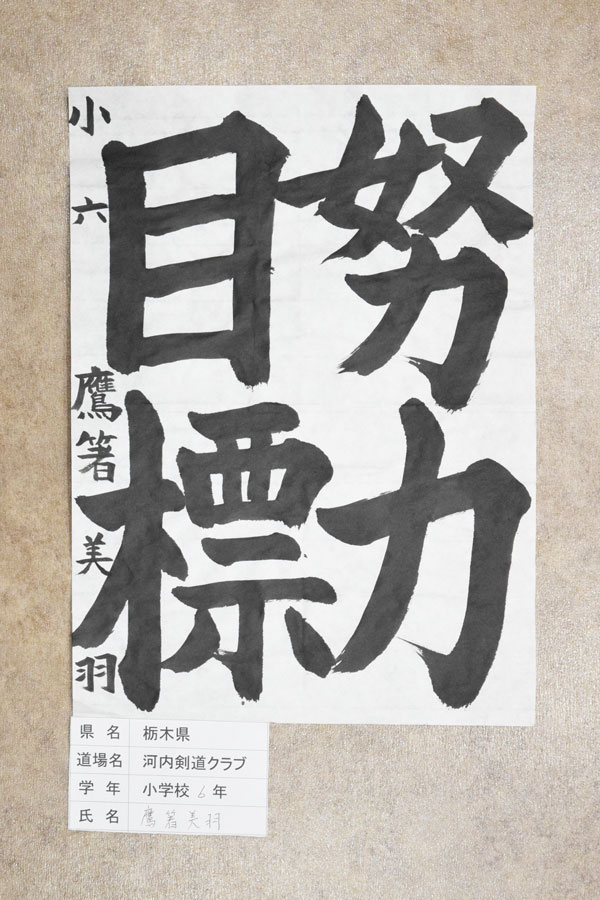 努力
目標
小六 鷹箸美羽
県名 栃木県
道場名 河内剣道クラブ
学年 小学校6年
氏名 鷹箸美羽